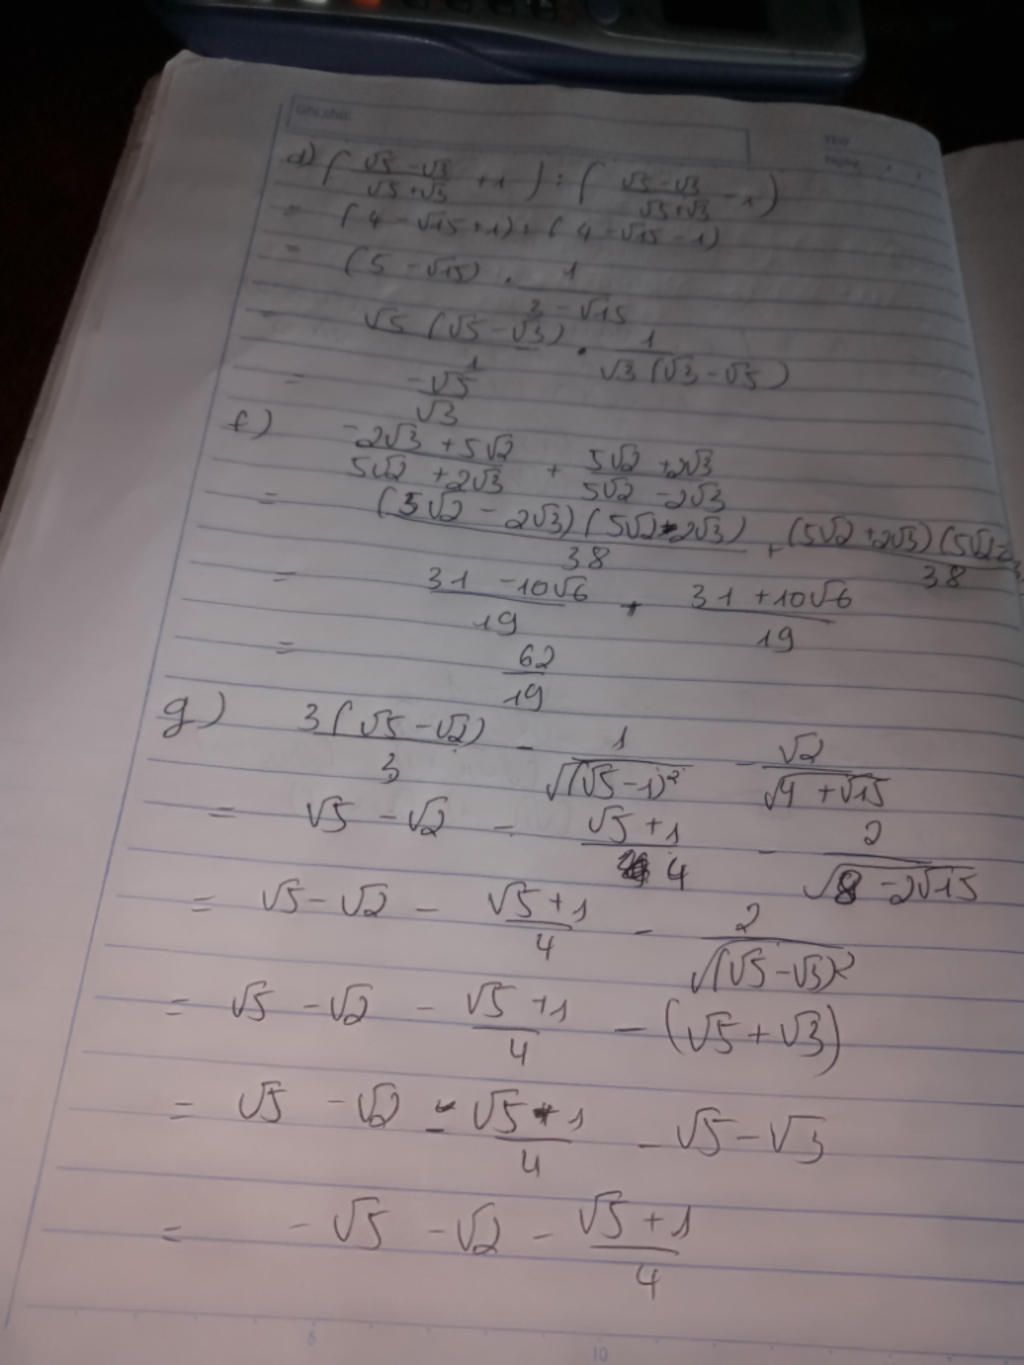 d) ( (√5 - √3)/(√5 + √3) + 1 ) : ( (√5 - √3)/(√5 + √3) - 1 )
= (4 - √15 + 1) : (4 - √15 - 1)
= (5 - √15) . 1/(3 - √15)
= √5 (√5 - √3) . 1/(√3 (√3 - √5))
= -√5/√3
f) (-2√3 + 5√2)/(5√2 + 2√3) + (5√2 + 2√3)/(5√2 - 2√3)
= (5√2 - 2√3)(5√2 - 2√3)/38 + (5√2 + 2√3)(5√2
38
= (31 - 10√6)/19 + (31 + 10√6)/19
= 62/19
g) 3(√5 - √2)/3 - 1/√((√5 - 1)²) - √2/√(4 + √15)
= √5 - √2 - (√5 + 1)/4 - 2/√(8 - 2√15)
= √5 - √2 - (√5 + 1)/4 - 2/√((√5 - √3)²)
= √5 - √2 - (√5 + 1)/4 - (√5 + √3)
= √5 - √2 - (√5 + 1)/4 - √5 - √3
= -√5 - √2 - (√5 + 1)/4
6 10